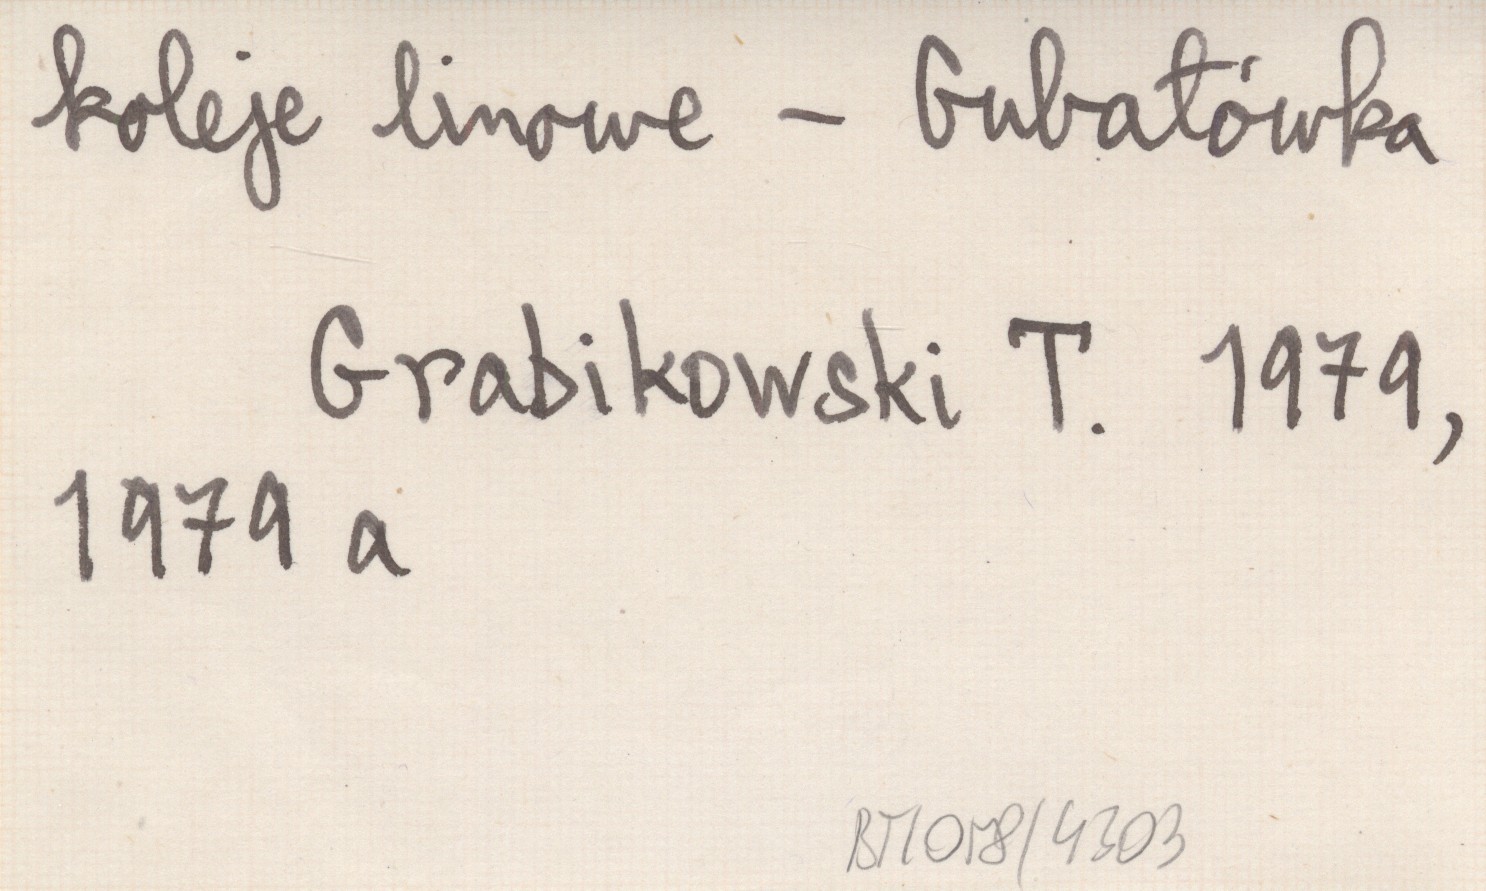 koleje linowe – Gubałówka
Grabikowski T. 1979,
1979 a
BT/078/4303